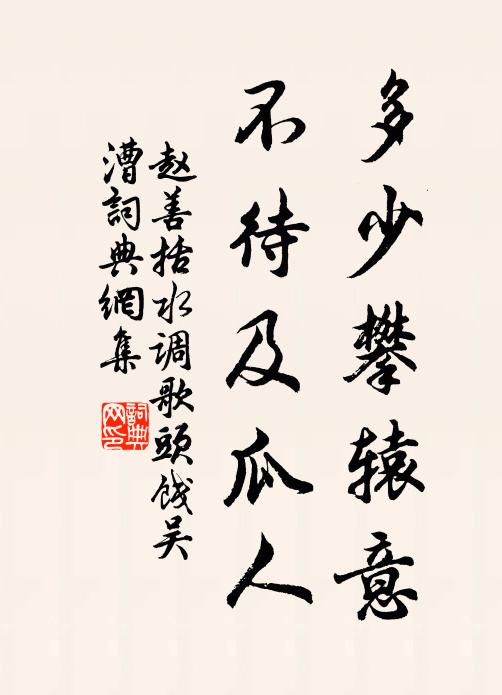 多少攀辕意
不待及瓜人
赵善括水调歌头饯吴
漕词典網集
詞典网印